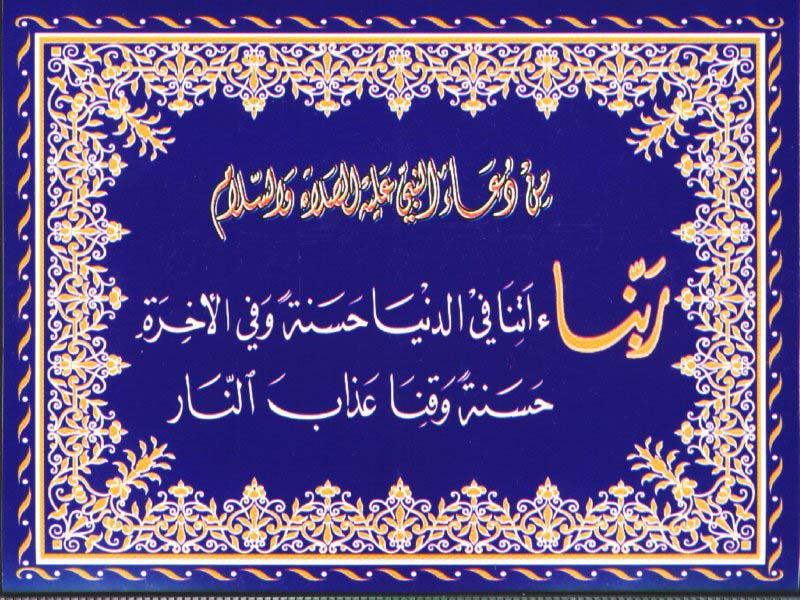 مِنْ دُعَاءِ النَّبِيِّ عَلَيْهِ الصَّلَاةُ وَالسَّلَام
رَبَّنَا ءَاتِنَا فِي الدُّنْيَا حَسَنَةً وَفِي الْأَخِرَةِ
حَسَنَةً وَقِنَا عَذَابَ النَّار